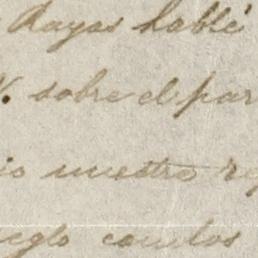 Rayas hablé
V. sobre el par
io nuestro re
eglo con los